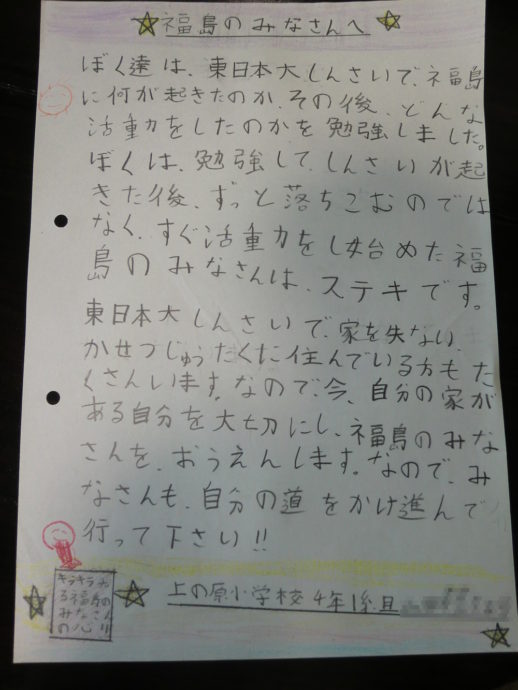 福島のみなさんへ
ぼく達は、東日本大しんさいで、福島
に何が起きたのか、その後、どんな
活動をしたのかを勉強しました。
ぼくは、勉強して、しんさいが起
きた後、ずっと落ちこむのでは
なく、すぐ活動をし始めた福
島のみなさんは、ステキです。
東日本大しんさいで、家を失ない、
かせつじゅうたくに住んでいる方もた
くさんいます。なので、今、自分の家が
ある自分を大切にし、福島のみな
さんを、おうえんします。なので、み
なさんも、自分の道をかけ進んで
行って下さい!!
キラキラチ
る福島の
みなさん
の心
上の原小学校4年1組